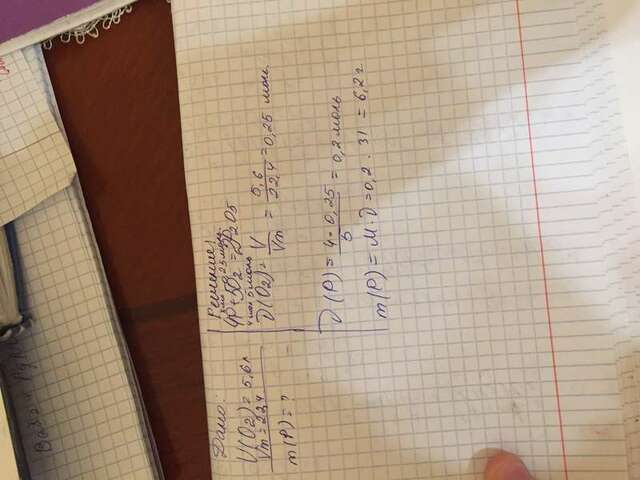 Дано:
V(O2) = 5,6 л
Vm = 22,4
m(P) = ?
Решение:
4P + 5O2 = 2P2O5
4 моль 5 моль
ν(O2) = V/Vm = 5,6/22,4 = 0,25 моль
ν(P) = 4 · 0,25/5 = 0,2 моль
m(P) = M · ν = 0,2 · 31 = 6,2 г